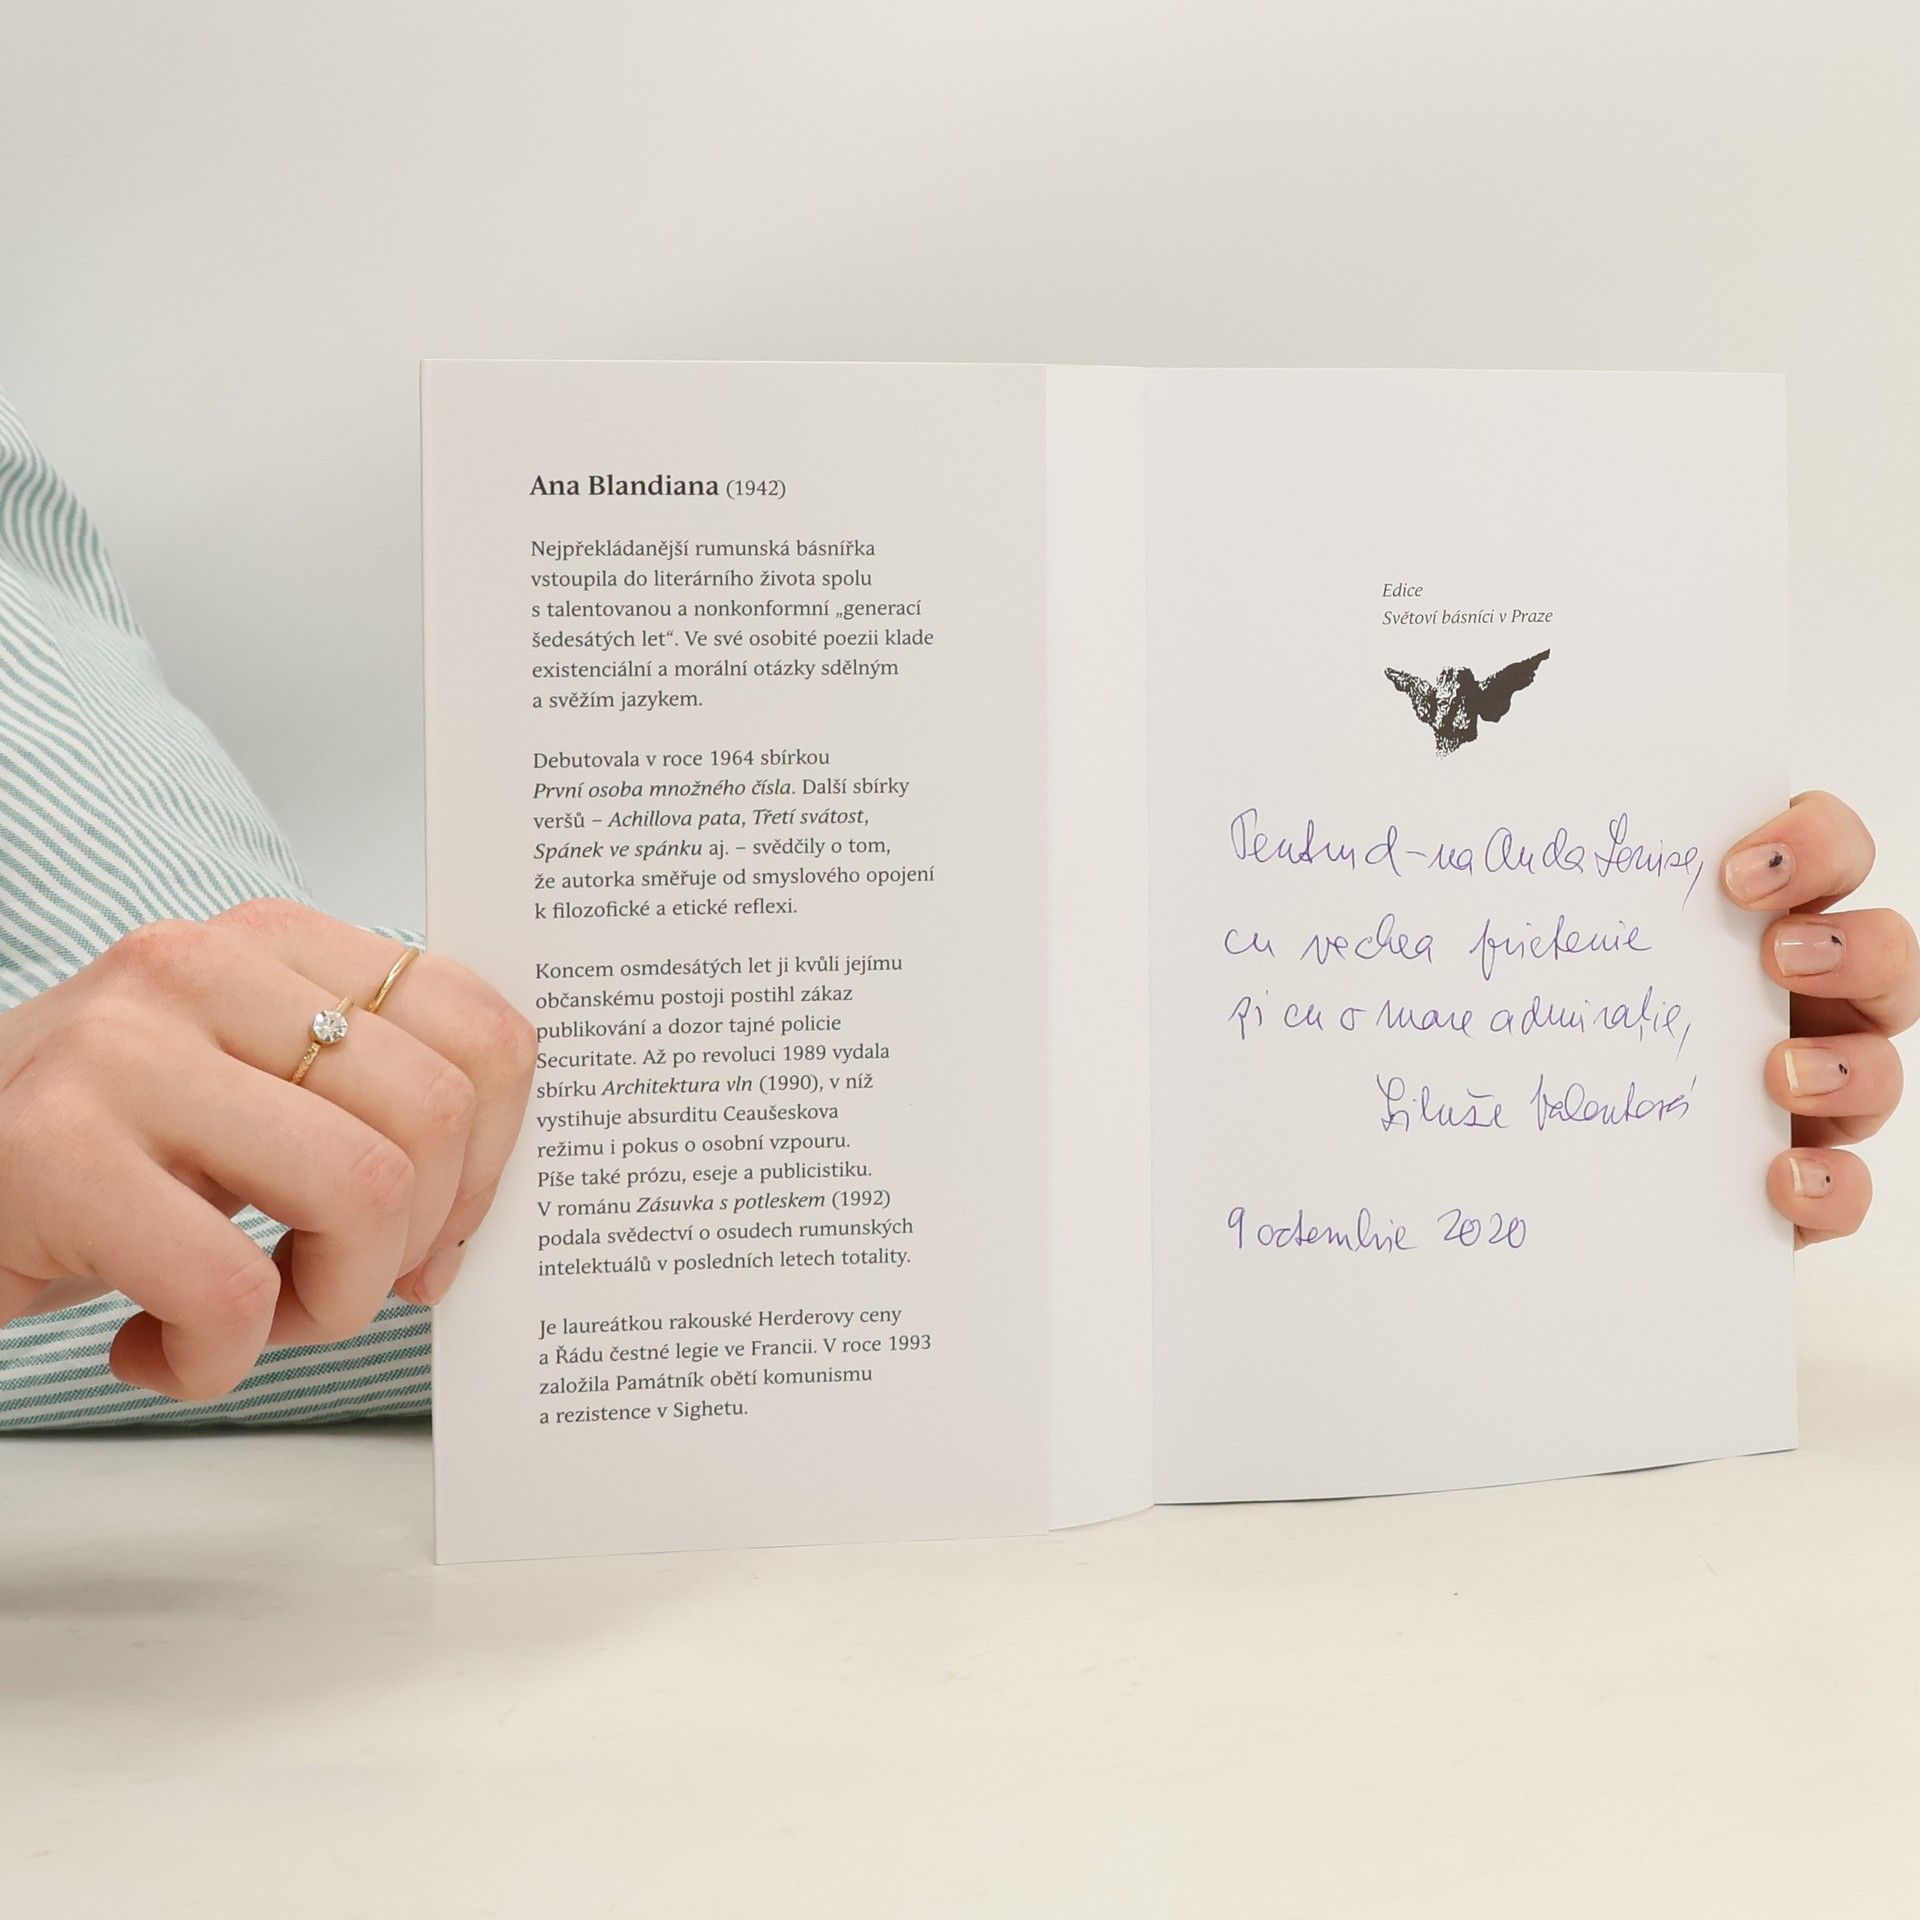 Ana Blandiana (1942)
Nejpřekládanější rumunská básnířka
vstoupila do literárního života spolu
s talentovanou a nonkonformní „generací
šedesátých let“. Ve své osobité poezii klade
existenciální a morální otázky sdělným
a svěžím jazykem.
Debutovala v roce 1964 sbírkou
První osoba množného čísla. Další sbírky
veršů – Achillova pata, Třetí svátost,
Spánek ve spánku aj. – svědčily o tom,
že autorka směřuje od smyslového opojení
k filozofické a etické reflexi.
Koncem osmdesátých let ji kvůli jejímu
občanskému postoji postihl zákaz
publikování a dozor tajné policie
Securitate. Až po revoluci 1989 vydala
sbírku Architektura vln (1990), v níž
vystihuje absurditu Ceaušeskova
režimu i pokus o osobní vzpouru.
Píše také prózu, eseje a publicistiku.
V románu Zásuvka s potleskem (1992)
podala svědectví o osudech rumunských
intelektuálů v posledních letech totality.
Je laureátkou rakouské Herderovy ceny
a Řádu čestné legie ve Francii. V roce 1993
založila Památník obětí komunismu
a rezistence v Sighetu.
Edice
Světoví básníci v Praze
Pentru d-na Anda Louise,
cu vechea prietenie
și cu o mare admirație,
Libuše Valentová
9 octombrie 2020